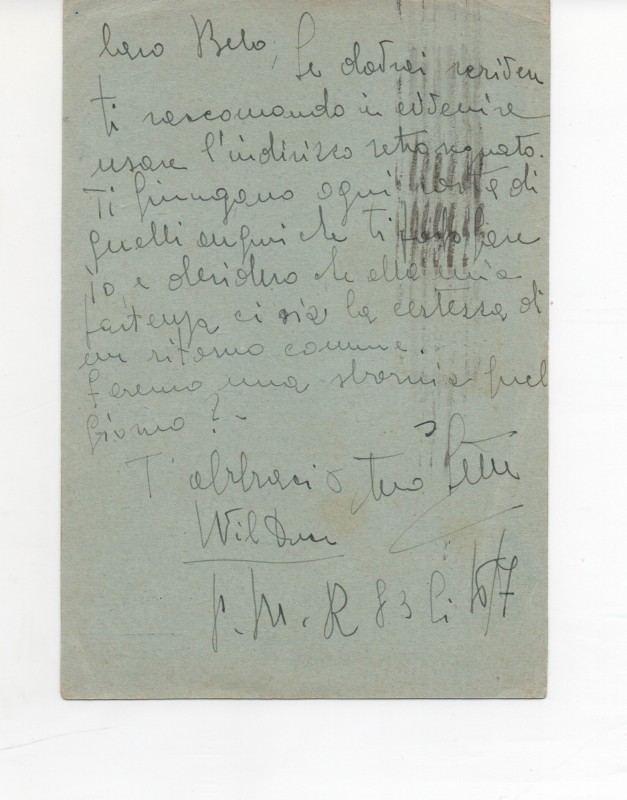 Caro Belo, Se dovrai scriver
ti raccomando in avvenire
usare l'indirizzo retrosegnato.
Ti giungano ogni sorta di
quelli auguri che ti so fare
io, e desidero che alla mia
partenza ci sia la certezza di
un ritorno comune..
Faremo una sbornia quel
giorno? -
T'abbraccio tuo
Wil Duce
P.M. R 83 li 16/7